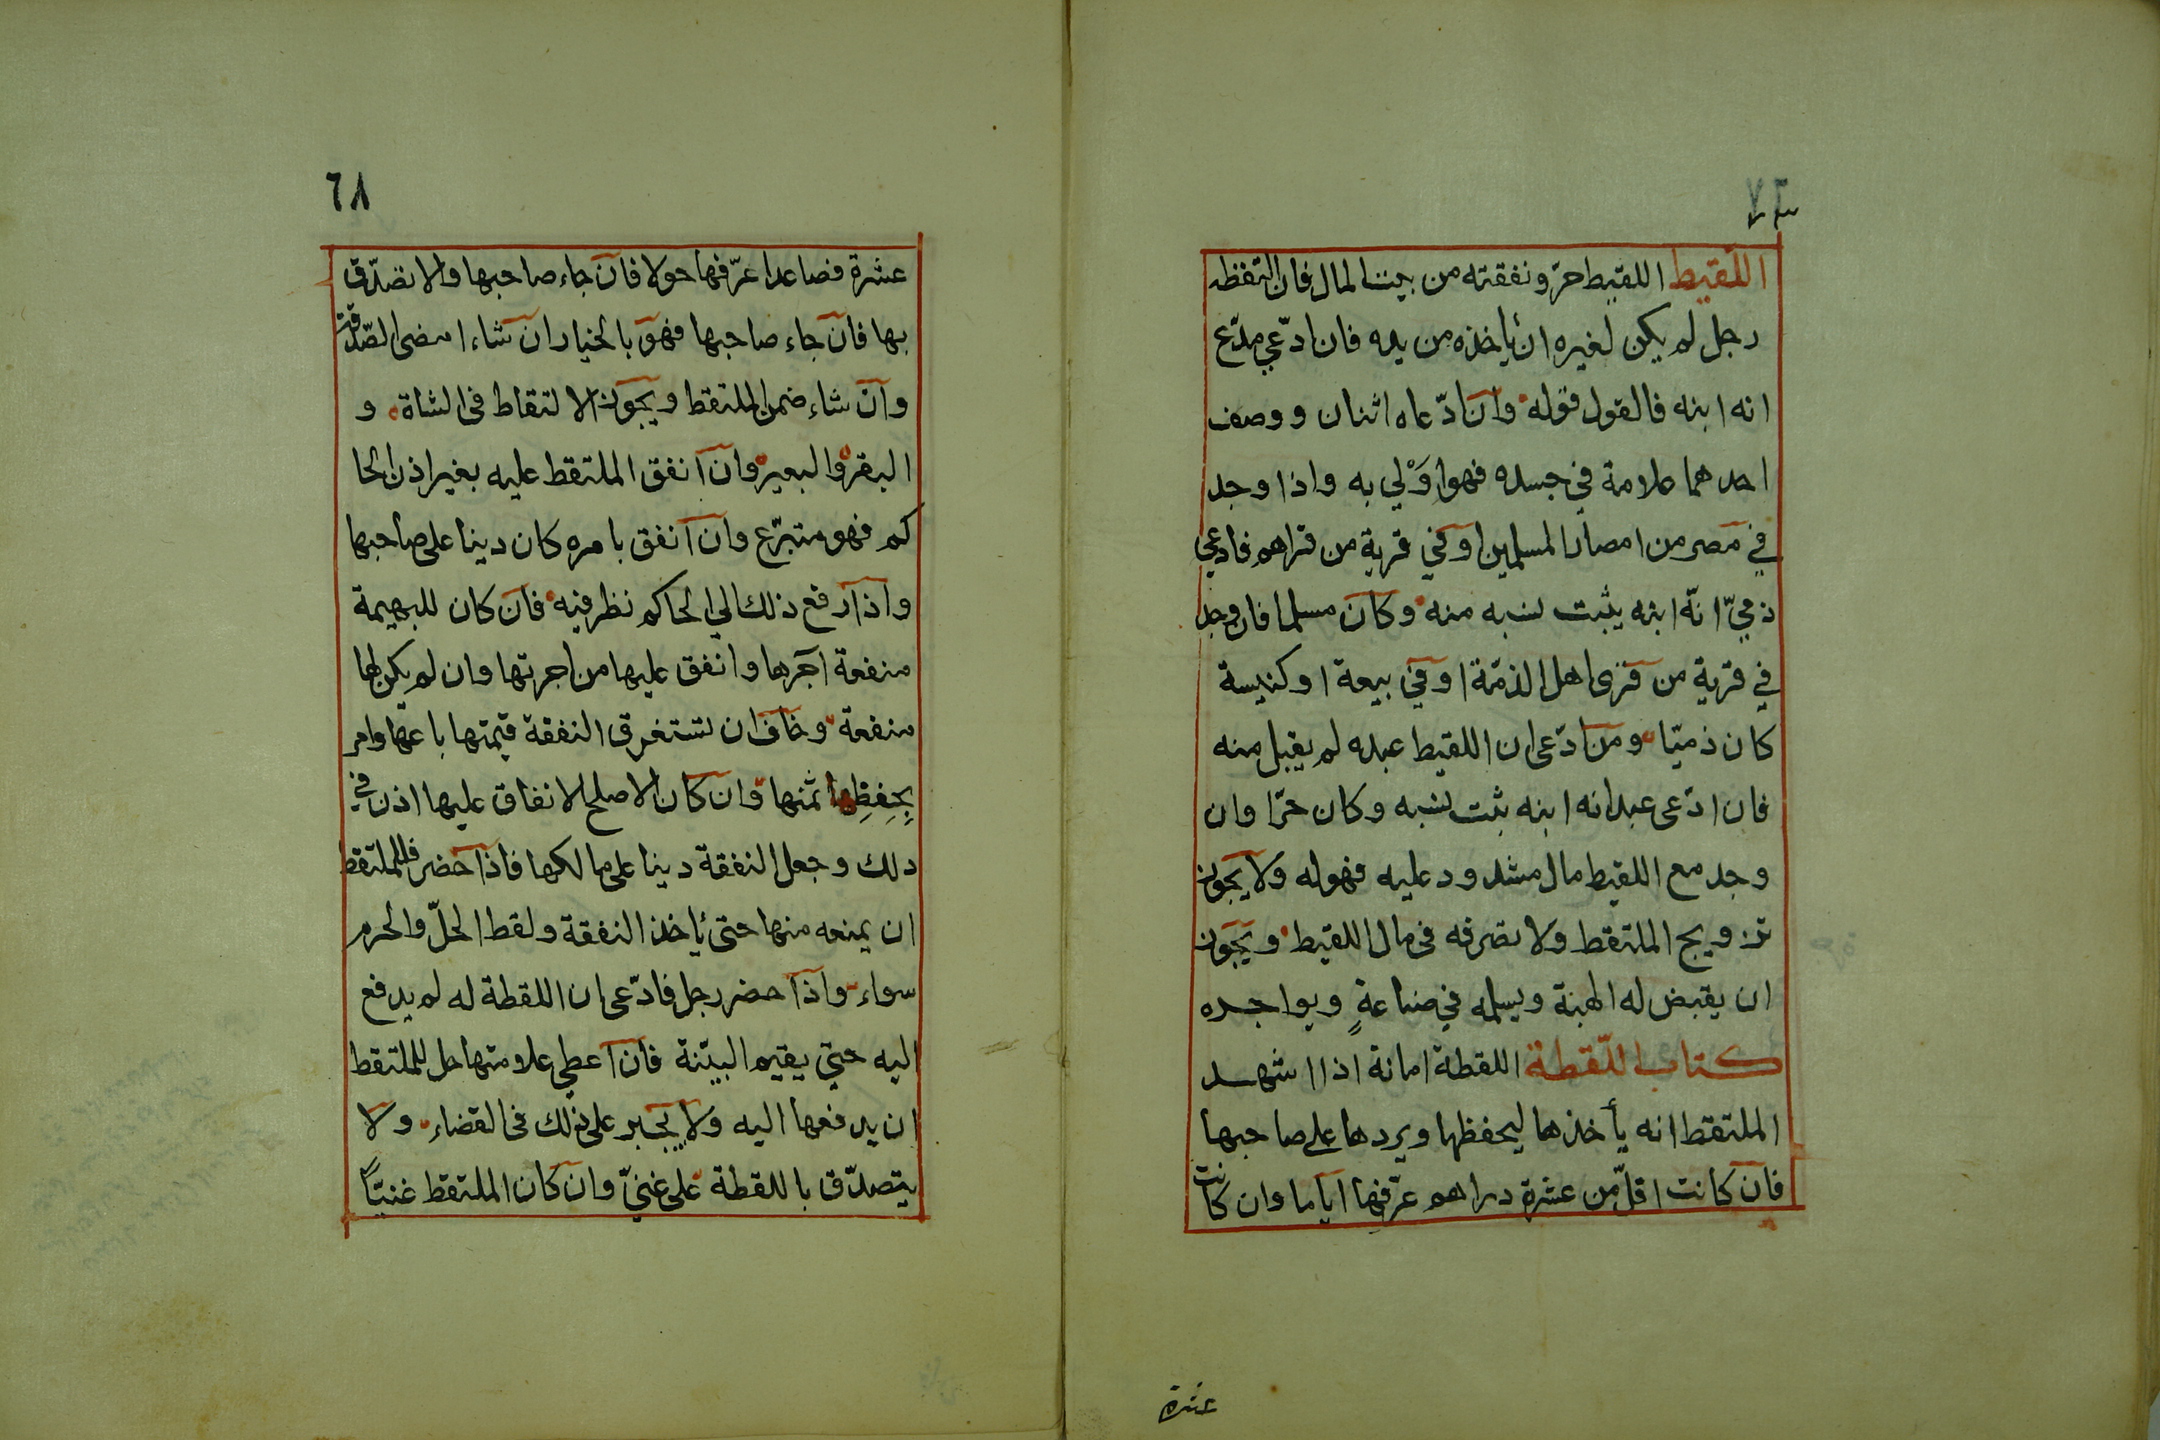 اللقيط اللقيط حرّ ونفقته من بيت المال فان التقطه
رجل لم يكن لغيره ان يأخذه من يده فان ادّعي مدّع
انه ابنه فالقول قوله وان ادّعاه اثنان ووصف
احدهما علامة في جسده فهو اَوْلي به واذا وجد
في مصر من امصار المسلمين او في قرية من قراهم فادعي
ذميّ انّه ابنه يثبت نسبه منه وكان مسلما فان وجد
في قرية من قرى اهل الذمّة او في بيعة او كنيسة
كان ذميّا ومن ادّعى ان اللقيط عبده لم يقبل منه
فان ادّعى عبد انه ابنه ثبت نسبه وكان حرّا وان
وجد مع اللقيط مال مشدود عليه فهو له ولا يجوز
تزويج الملتقط ولا تصرفه في مال اللقيط ويجوز
ان يقبض له الهبة ويسلمه في صناعةٍ ويواجره
كتاب اللّقطة اللقطة امانة اذا اشهد
الملتقط انه يأخذها ليحفظها ويردها على صاحبها
فان كانت اقلّ من عشرة دراهم عرّفها اياما وان كانت
عشرة
٦٨
عشرة فصاعدا عرّفها حولا فان جاء صاحبها والا تصدّق
بها فان جاء صاحبها فهو بالخيار ان شاء امضى الصّدقة
وان شاء ضمن الملتقط ويجوز الالتقاط في الشاة و
البقر والبعير وان انفق الملتقط عليه بغير اذن الحا
كم فهو متبرّع وان انفق بامره كان دينا على صاحبها
واذا رفع ذلك الي الحاكم نظر فيه فان كان للبهيمة
منفعة آجرها وانفق عليها من اجرتها وان لم يكن لها
منفعة وخاف ان تستغرق النفقة قيمتها باعها وامر
بِحِفِظِها ثمنها وان كان الاصلح الانفاق عليها اذن في
ذلك وجعل النفقة دينا على مالكها فاذا حضر فللملتقط
ان يمنعه منها حتى يأخذ النفقة ولقط الحلّ والحرم
سواء واذا حضر رجل فادّعى ان اللقطة له لم يدفع
اليه حتي يقيم البيّنة فان اعطي علامتها حل للملتقط
ان يدفعها اليه ولا يجبر على ذلك في القضاء ولا
يتصدّق باللقطة على غنيّ وان كان الملتقط غنيّاً